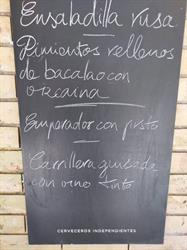 Ensaladilla rusa
Pimientos rellenos
de bacalao con
vizcaina
Emperador con pisto
Carrillera guisada
con vino tinto
CERVECEROS INDEPENDIENTES